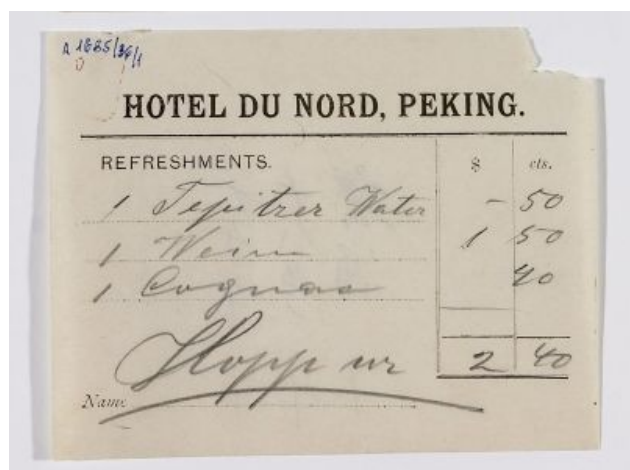 A 1835/36/1
HOTEL DU NORD, PEKING.
REFRESHMENTS. $ cts.
1 Tepitzer Water - 50
1 Wein 1 50
1 Cognac 40
Hopp ur 2 40
Name